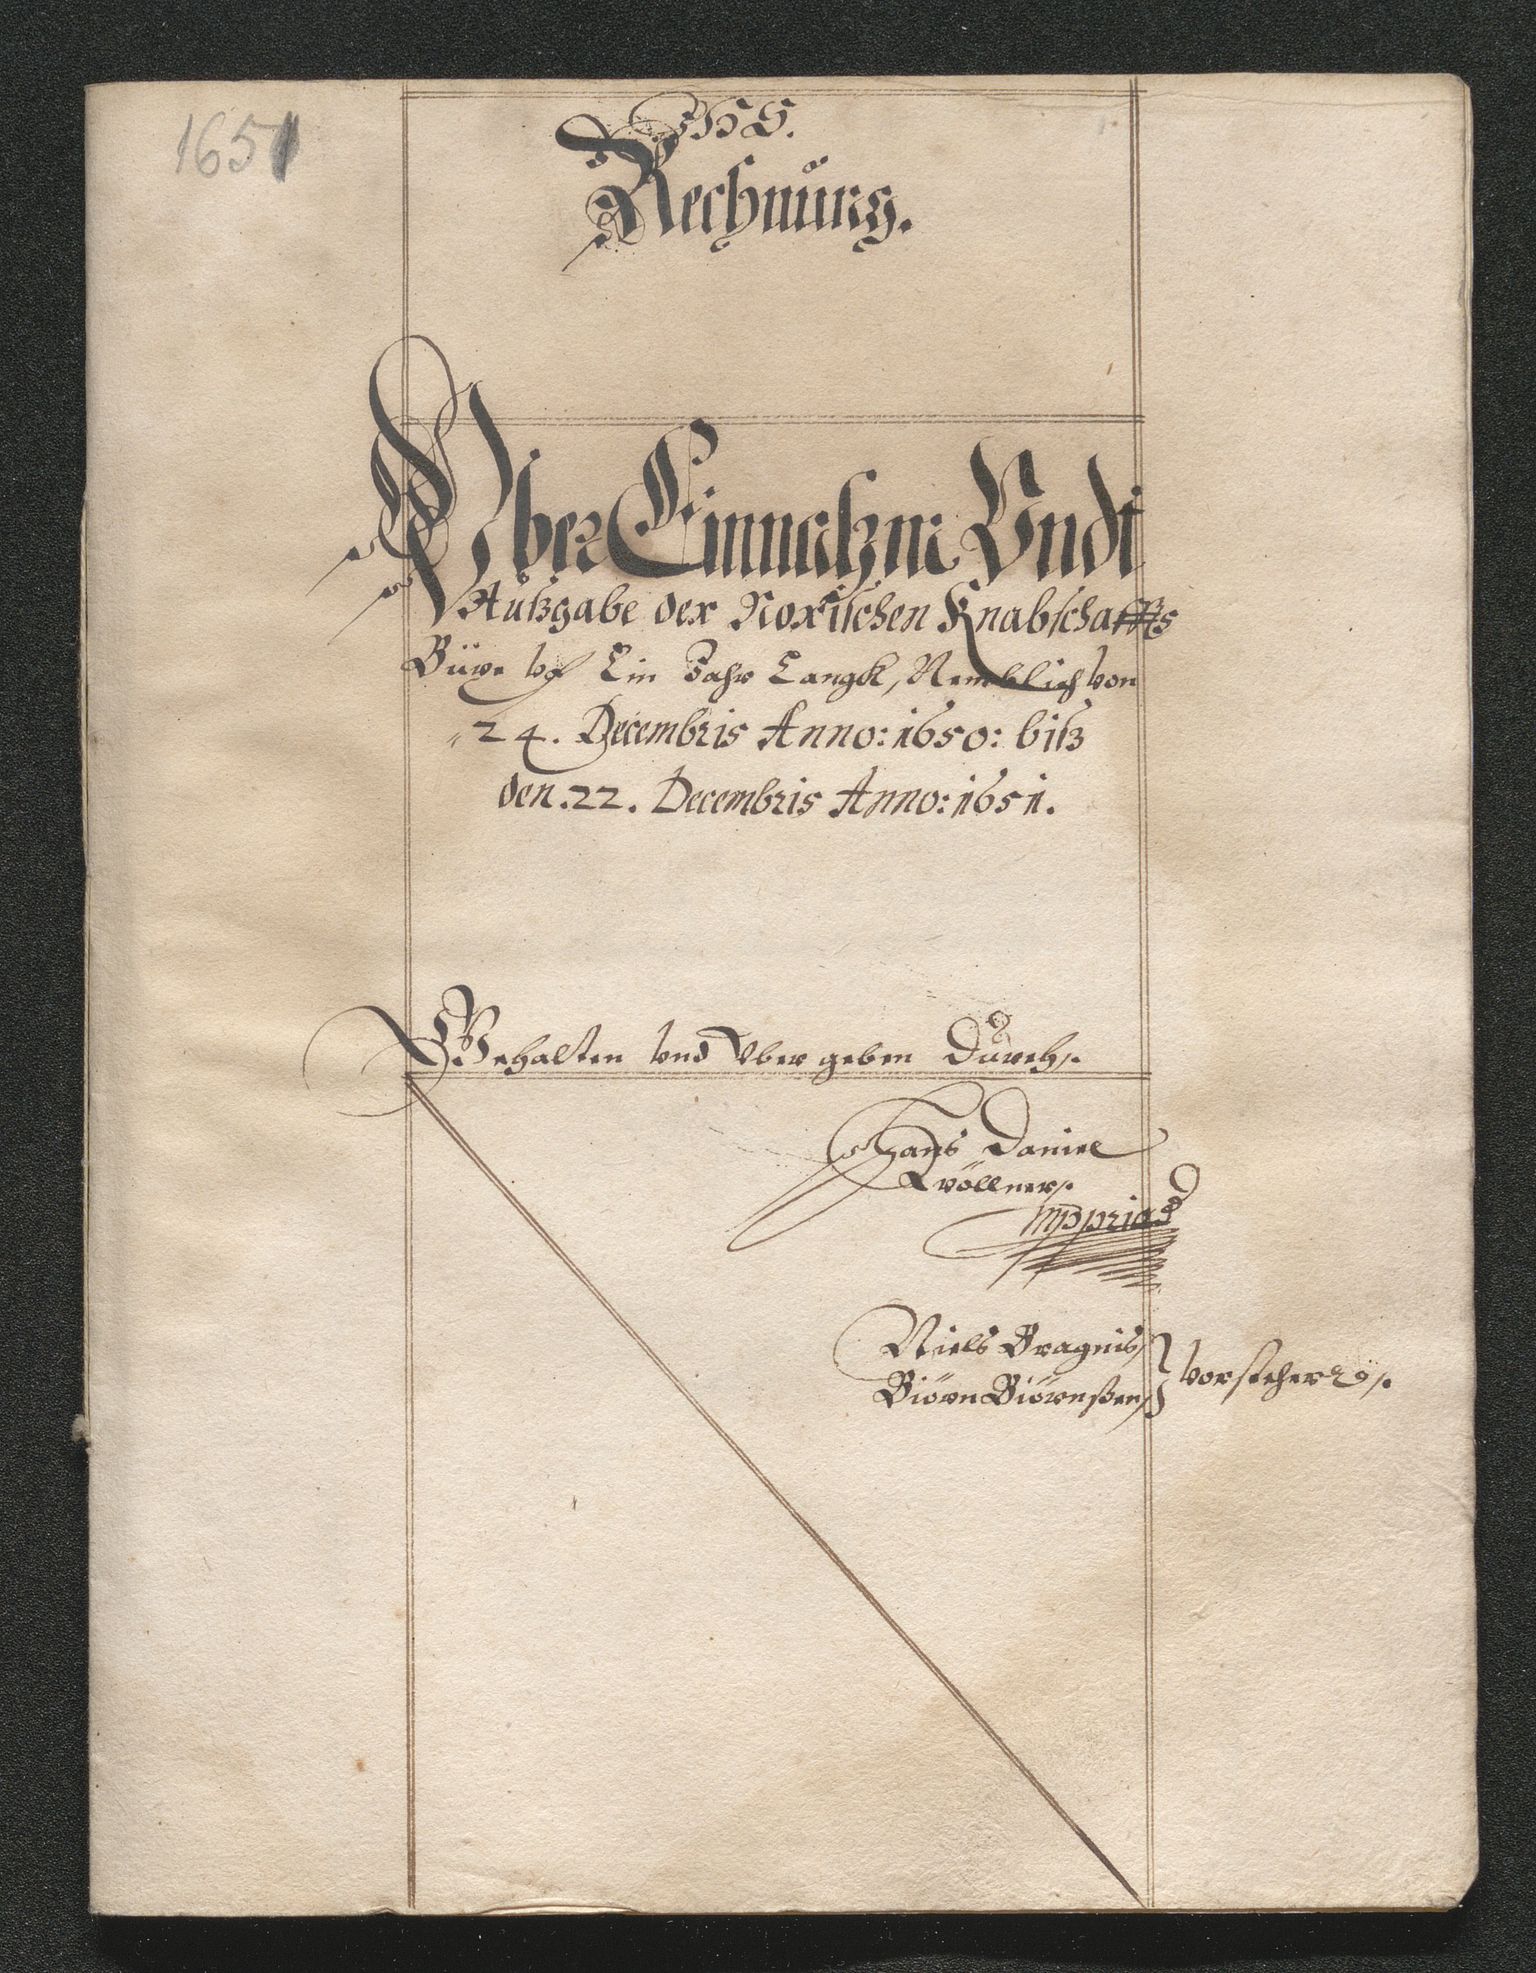 1651
IHS.
Rechnüng.
Vber Einnahm Vndt
Außgabe der Norischen Knabschaffts
Büxe vf Ein Jahr Langk, Nemblich von
24. Decembris Anno: 1650: biß
den. 22. Decembris Anno: 1651.
Gehalten vnd Vbergeben Dürch.
Hans Daniel
Kröllner.
mppria
Niels Bragnis
Biörn Biörnßen
Vorsteher